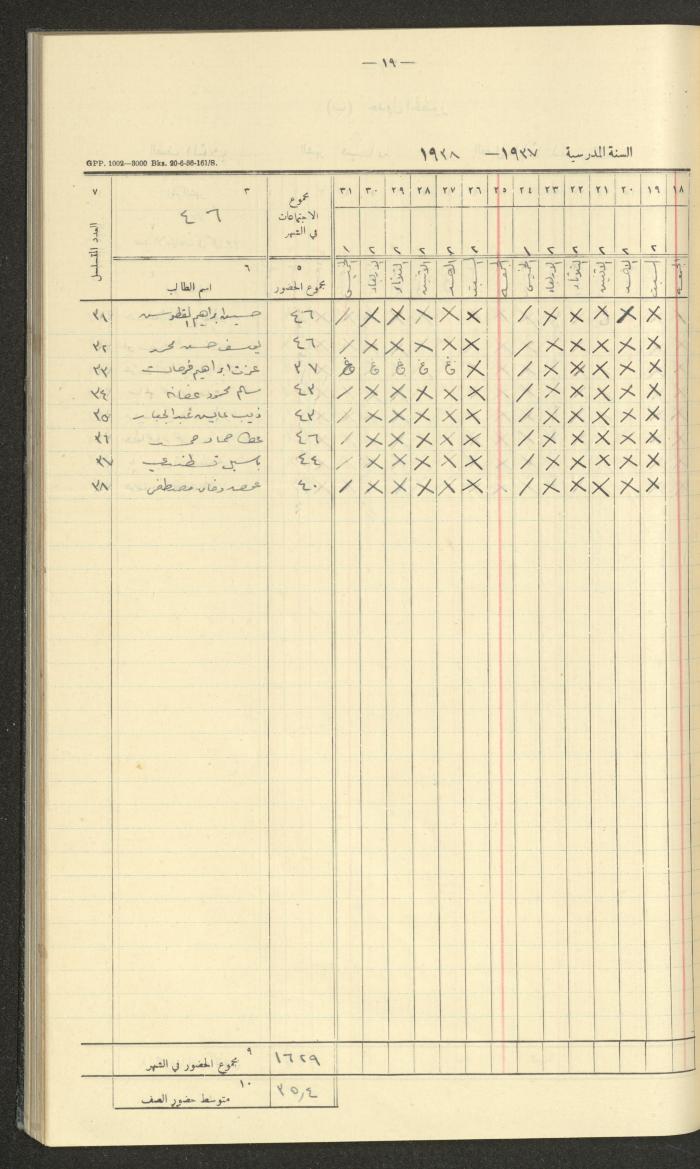 — ١٩ —
السنة المدرسية ١٩٣٧— ١٩٣٨
GPP. 1002—3000 Bks. 20-6-36-161/S.
١٨ ١٩ ٢٠ ٢١ ٢٢ ٢٣ ٢٤ ٢٥ ٢٦ ٢٧ ٢٨ ٢٩ ٣٠ ٣١ مجموع الاجتماعات في الشهر ٣ ٧
٤٦
٢ ٢ ٢ ٢ ٢ ١ ٢ ٢ ٢ ٢ ٢ ١
الجمعة السبت الاحد الاثنين الثلاثاء الاربعاء الخميس الجمعة السبت الاحد الاثنين الثلاثاء الاربعاء الخميس
٥ مجموع الحضور ٦ اسم الطالب العدد المتسلسل
X X X X X X / X X X X X / ٤٦ حسين ابراهيم ٣١
X X X X X X / X X X X X / ٤٦ يوسف حسن محمد ٣٢
X X X X X / X غ غ غ غ غ ٣٧ عزت ابراهيم فرحات ٣٣
X X X X X / X X X X X / ٤٣ سالم محمود ٣٤
X X X X X / X X X X X / ٤٣ ذيب عبدالجبار ٣٥
X X X X X / X X X X X / ٤٦ عطا حماد ٣٦
X X X X X / X X X X X / ٤٤ باسيل ٣٧
X X X X X / X X X X X / ٤٠ مصطفى ٣٨
٩ مجموع الحضور في الشهر ١٦٢٩
١٠ متوسط حضور الصف ٣٥,٤